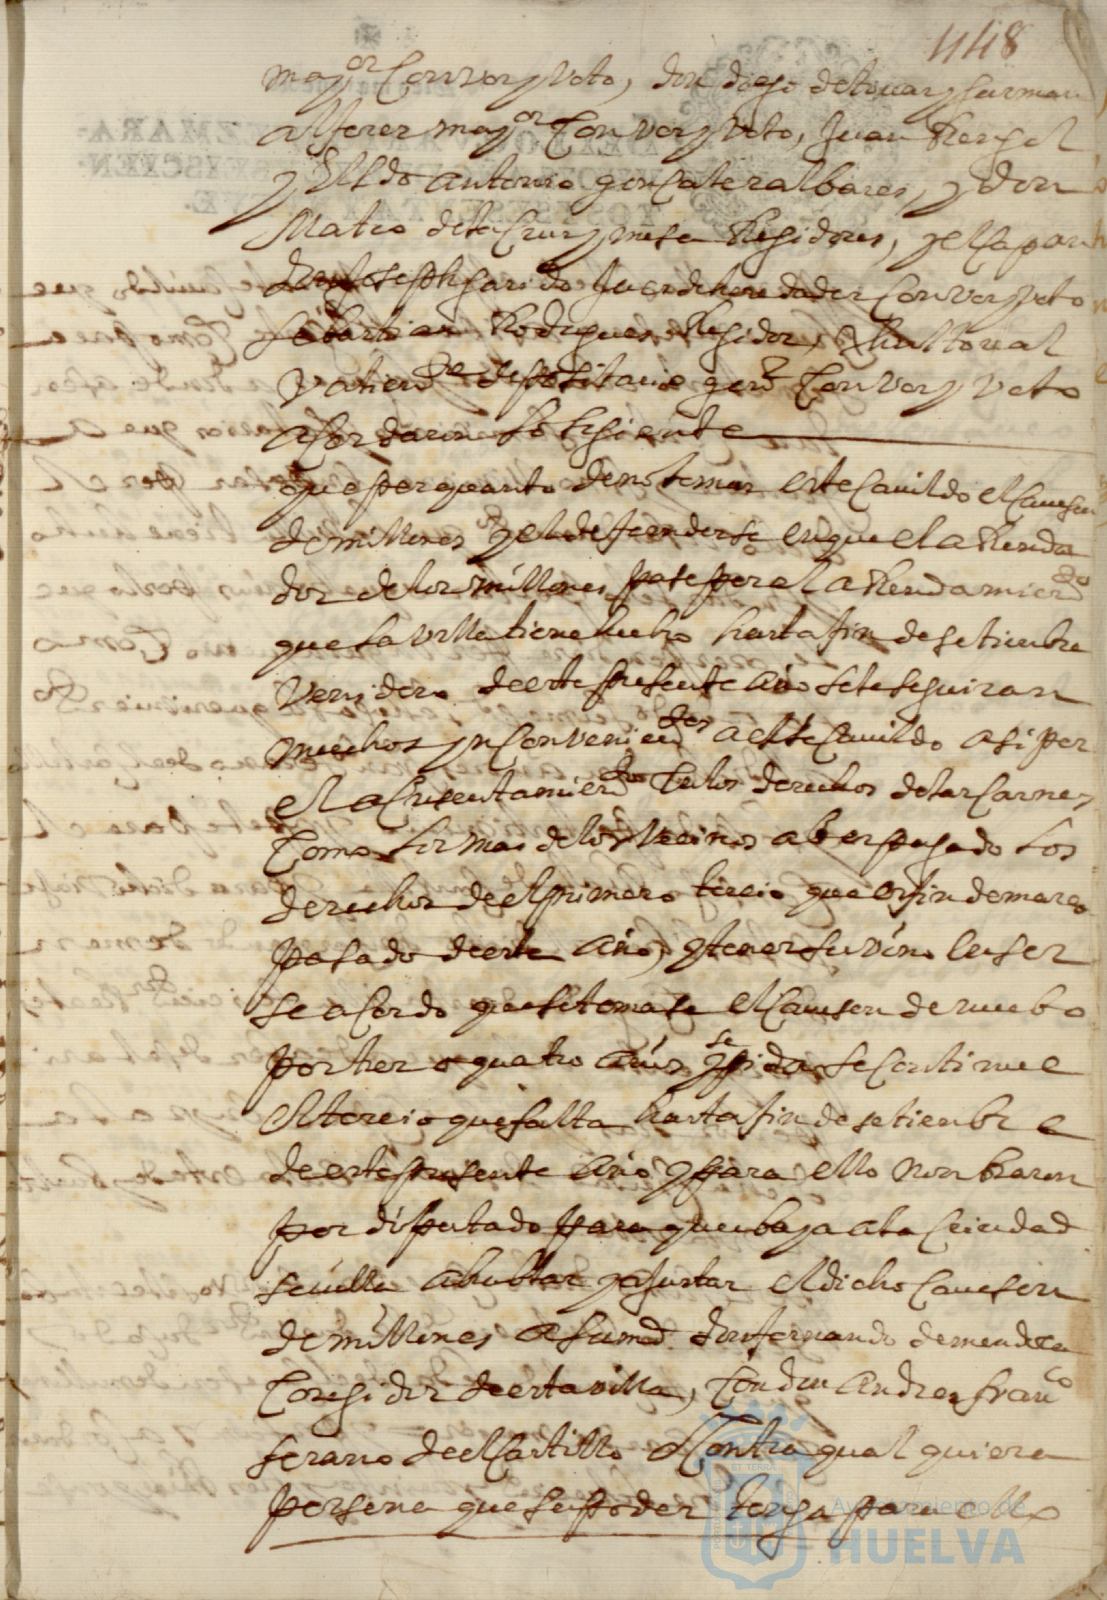 448
mayor Con voz y Voto, don diego de touar y gusman
alferez mayor Con voz y Voto, Juan Rengel
y Elldo antonio gonsalez albares, y don
Mateo de la Cruz y mesa Regidores, y
Joseph garrido Con voz y Voto
Sebastian Rodrigues Regidor,
depositario genl Con voz y Voto
acordaron lo sigiente
que por quanto de no tomar este Cauildo el Caueson
de millones y el defenderse en que el aRenda
dor de los millones pase por el aRendamiendo
que la Villa tiene hecho hasta fin de setiembre
Venidero de este presente año se le seguiran
muchos ynConvenientes a este Cauildo asi por
el aCresentamiento en los derechos de las Carnes
Como los mas de los Vecinos aber pagado los
derechos de el primero tercio que es fin de março
pasado de este año, y tener su vino
se aCordo que se tomase el Caueson de nuebo
por tres o quatro años y se pida se Continue
el tercio que falta hasta fin de setiembre
de este presente año y para ello nonbraron
por diputado para que baya a la Ciudad
seuilla a hablar y ajustar el dicho Caueson
de millones a su md. don fernando de mendoca
Coregidor de esta villa, Con don andres franco
serano de el Castillo o Contra qual quiera
persona que su poder tenga para ello
Ayuntamiento de
HUELVA